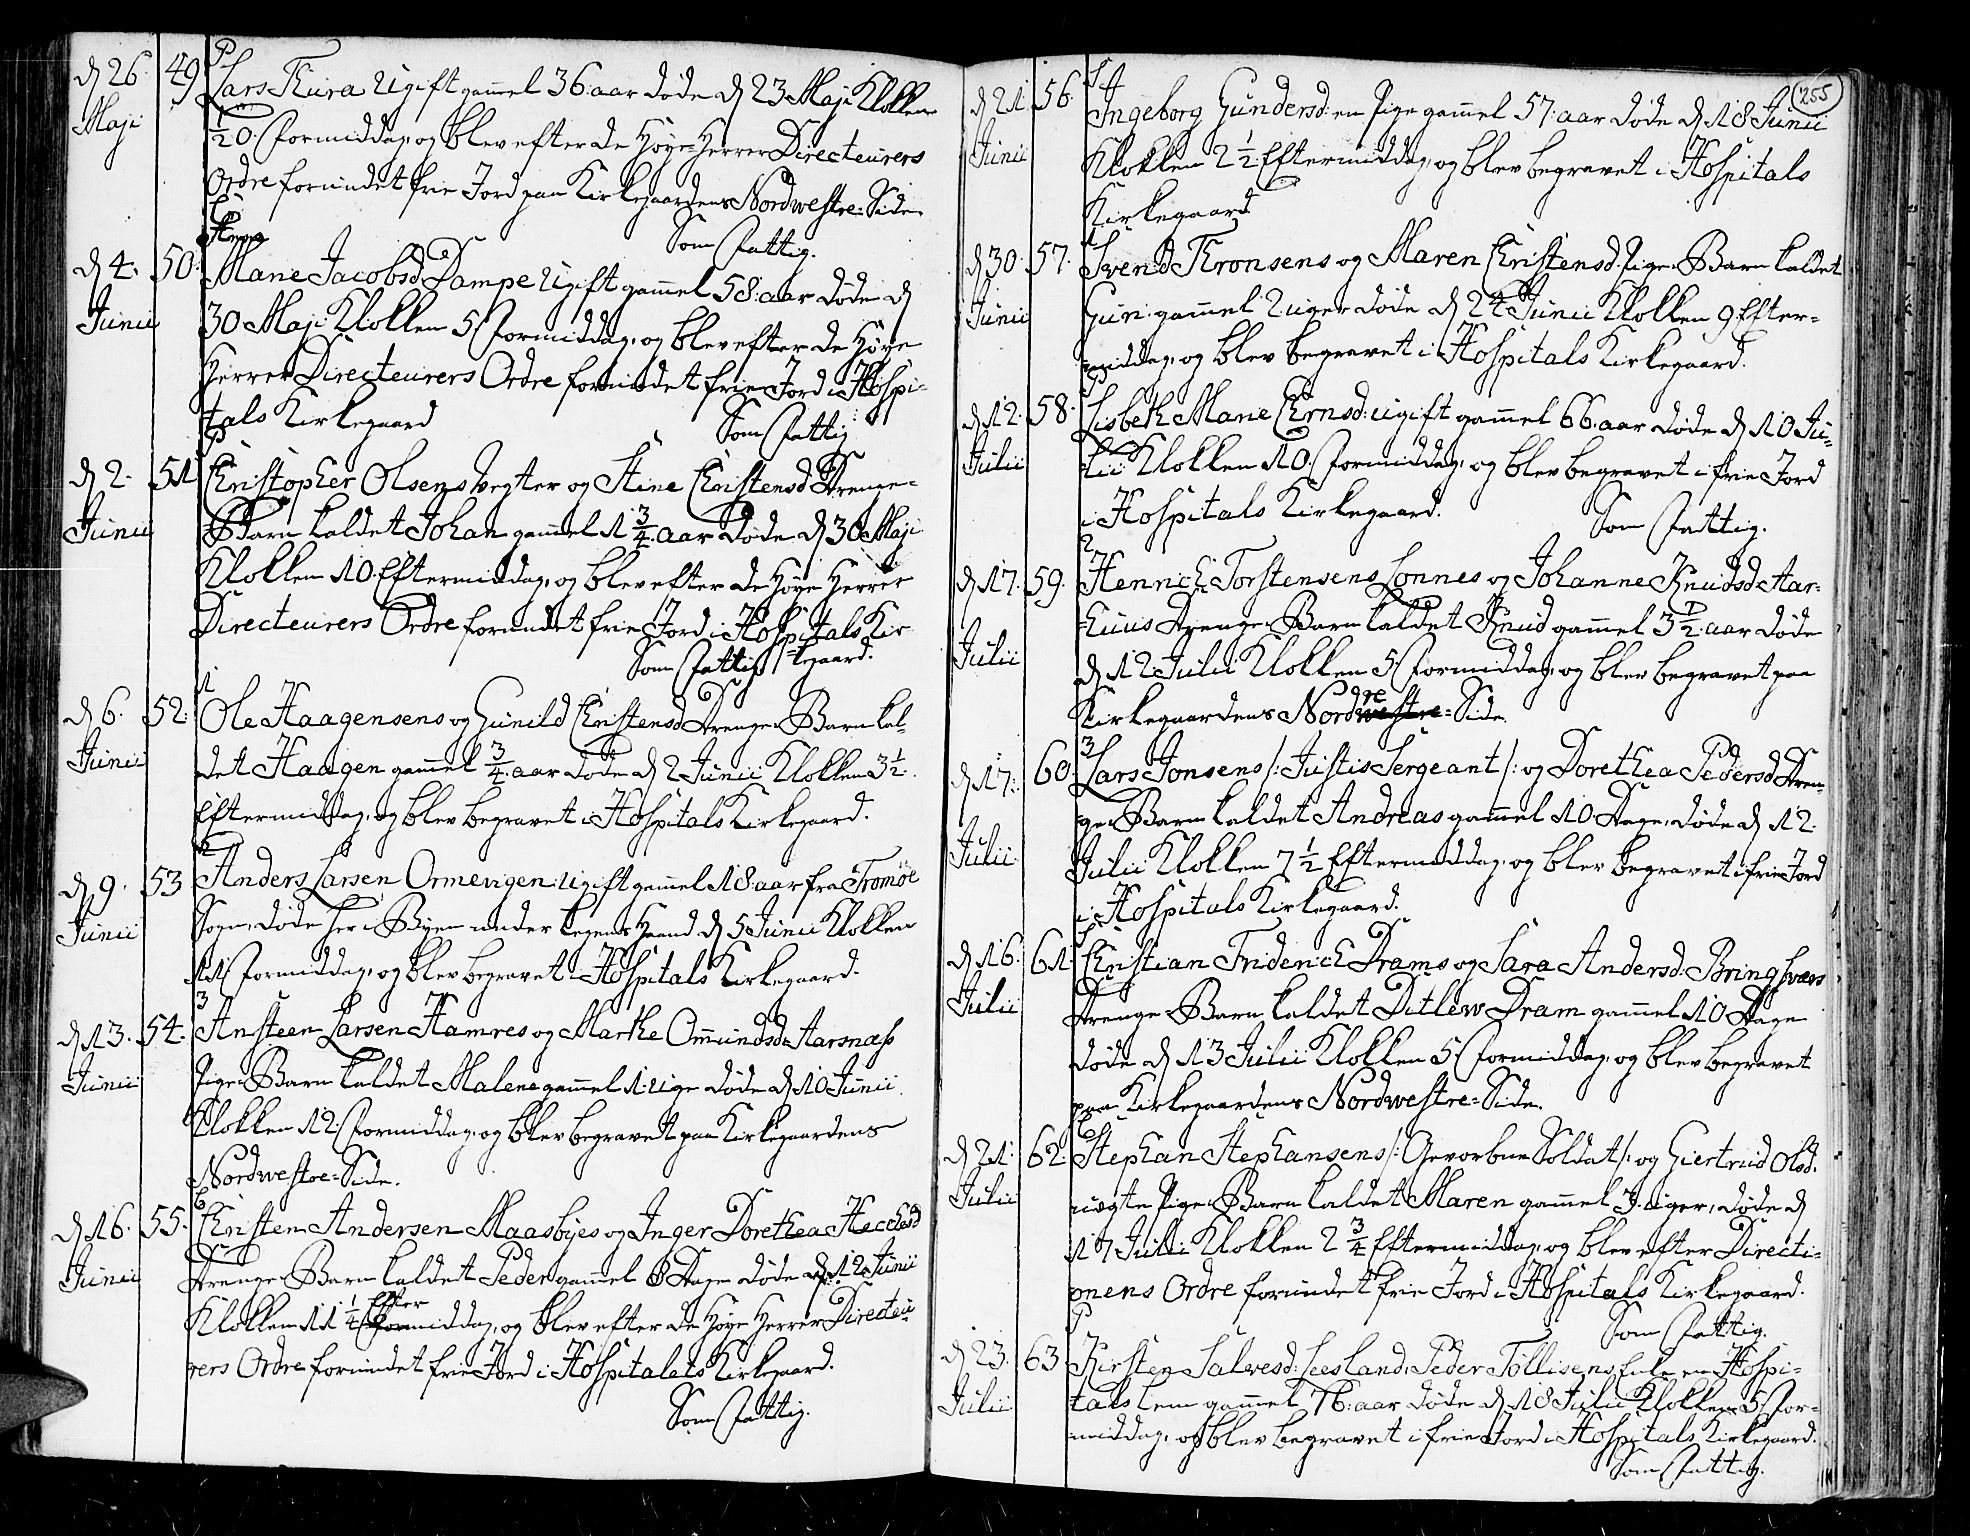 d 26 Maji 49 Lars Thura Ugift gammel 36: aar døde d 23 Maji Klokken
½0. Formiddag, og blev efter de Høye Herrer Directeurers
Ordre forundet frie Jord paa Kirkegaardens Nordwestre=Side
Som Fattig.
d 4. Junii 50. Mane Jacobsd Dampe Ugift gammel 58: aar døde d
30 Maji Klokken 5 Formiddag, og blev efter de Høye
Herrer Directeurers Ordre forundet frie Jord i Hospi=
tals Kirkegaard
Som Fattig
d 2. Junii 51 Christopher Olsens Vegter og Stine Christensd Drenge=
Barn kaldet Johan gammel 1¾ aar døde d 30 Maji
Klokken 10. Eftermiddag, og blev efter de Høye Herrer
Directeurers Ordre forundet frie Jord i Hospitals Kir
=kegaard.
Som Fattig
1
d 6. Junii 52. Ole Haagensens og Gunild Christensd Drenge=Barn kal=
det Haagen gammel ¾ aar døde d 2 Junii Klokken 3½.
Eftermiddag, og blev begravet i Hospitals Kirkegaard.
2
d 9. Junii 53 Anders Larsen Ormevigen: Ugift gammel 18: aar fra Tromøe
Sogn, døde her i Byen under Legens Haand d 5 Junii Klokken
11 Formiddag, og blev begravet i Hospitals Kirkegaard.
3
d 13. Junii 54. Ansteen Larsen Hamres og Marthe Ommundsd Aarsnæss
Pige=Barn kaldet Malene gammel 1: uge døde d 10 Junii
Klokken 12 Formiddag, og blev begravet paa Kirkegaardens
Nordwestre=Side.
d 16. Junii 55. Christen Andersen Maasbyes og Inger Dorethea
Drenge=Barn kaldet Peder gammel 8 Dage døde d 12 Junii
Klokken 11¼ Efter middag, og blev efter de Høye Herrer Directeu=
rers Ordre forundet frie Jord i Hospitalets Kirkegaard.
Som Fattig.
255
d 21. Junii 56. Ingeborg Gundersd: en Pige gammel 57: aar døde d 18 Junii
Klokken 2½ Eftermiddag, og blev begravet i Hospitals
Kirkegaard
d 30. Junii 57. Svend Thronsens og Maren Christensd. Pige=Barn kaldet
Guri: gammel 2 uger døde d 24 Junii Klokken 9 Efter=
middag, og blev begravet i Hospitals Kirkegaard.
d 12. Julii 58. Lisbeth Mane Ernsd: ugift gammel 66: aar døde d 10 Ju=
lii Klokken 10. Formiddag, og blev begravet i frie Jord
i Hospitals Kirkegaard.
Som Fattig.
2
d 17. Julii 59. Henrich Torstensens Lonnes og Johanne Knudsd Aar=
huus Drenge=Barn kaldet Knud gammel 3½ aar døde
d 12 Julii Klokken 5 Formiddag, og blev begravet paa
Kirkegaardens Nordre=Side.
3
d 17. Julii 60. Lars Jonsens /: Justis Sergeant :/ og Dorethea Pedersd Dren=
ge=Barn kaldet Andreas gammel 10 Dage, døde d 12.
Julii Klokken 7½ Eftermiddag, og blev begravet i frie Jord
i Hospitals Kirkegaard.
d 16. Julii 61. Christian Friderich Drams og Sara Andersd: Bringsværs
Drenge=Barn kaldet Ditlew Dram gammel 10 Dage
døde d 13 Julii Klokken 5 Formiddag, og blev begravet
paa Kirkegaardens Nordwestre=Side.
d 21. Julii 62. Stephan Stephansens /: Gevorben Soldat :/ og Giertrud Olsd.
uægte Pige=Barn kaldet Maren gammel 3. uger, døde d
17 Julii Klokken 2¾ Eftermiddag, og blev efter Directi=
onens Ordre forundet frie Jord i Hospitals Kirkegaard.
Som Fattig.
d 23. Julii 63 Kirsten Salvesd: Leesland, Peder Tollisens Enke en Hospi=
tals Lem gammel 76: aar døde d 18 Julii Klokken 5 For=
middag, og blev begravet i frie Jord i Hospitals Kirkegaard.
Som Fattig.